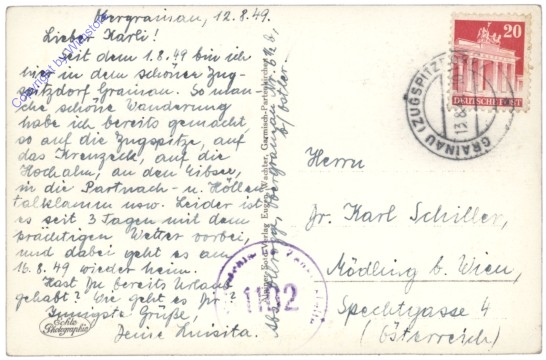 Obergrainau, 12.8.49.
Lieber Karli!
Seit dem 1.8.49 bin ich
hier in dem schönen Zug-
spitzdorf Grainau. So man-
che schöne Wanderung
habe ich bereits gemacht,
so auf die Zugspitze, auf
das Kreuzeck, auf die
Hochalm, an den Eibsee,
in die Partnach- u. Höllen-
talklamm usw. Leider ist
es seit 3 Tagen mit dem
prächtigen Wetter vorbei,
und dabei geht es am
16.8.49 wieder heim.
Hast Du bereits Urlaub
gehabt? Wie geht es Dir?
Innigste Grüße,
Deine Luisita.
Echte
Photographie
Garmisch-Partenkirchen
Obergrainau
1102
20
DEUTSCHE POST
GRAINAU (ZUGSPITZ
Herrn
Dr. Karl Schiller,
Mödling b. Wien,
Spechtgasse 4
(Österreich)